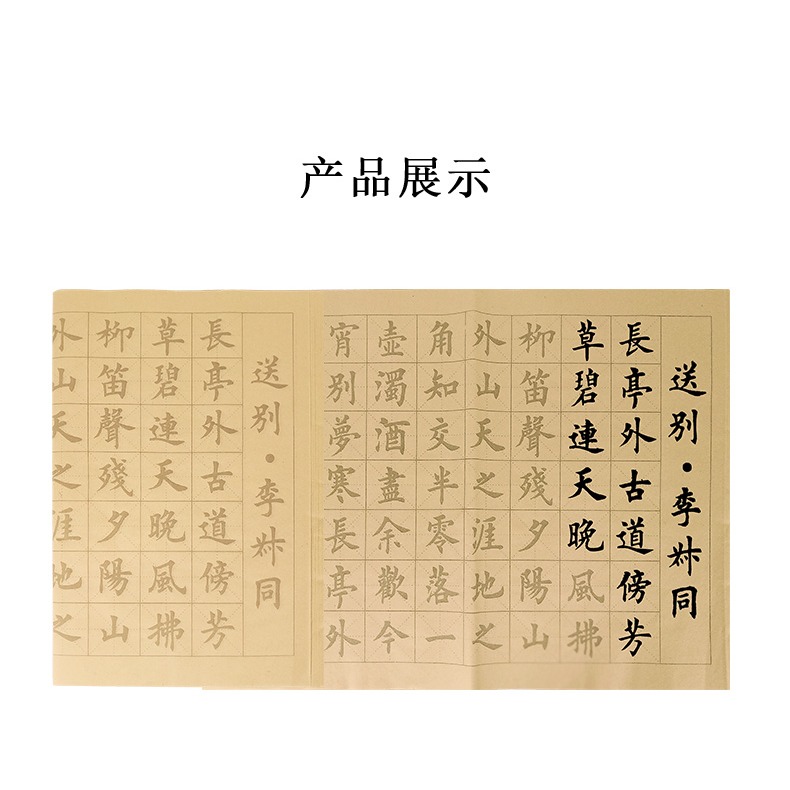 产品展示
送別·李叔同
長亭外古道傍芳
草碧連天晚風拂
柳笛聲殘夕陽山
外山天之涯地之
角知交半零落一
壺濁酒盡余歡今
宵別夢寒長亭外
送別·李叔同
長亭外古道傍芳
草碧連天晚風拂
柳笛聲殘夕陽山
外山天之涯地之